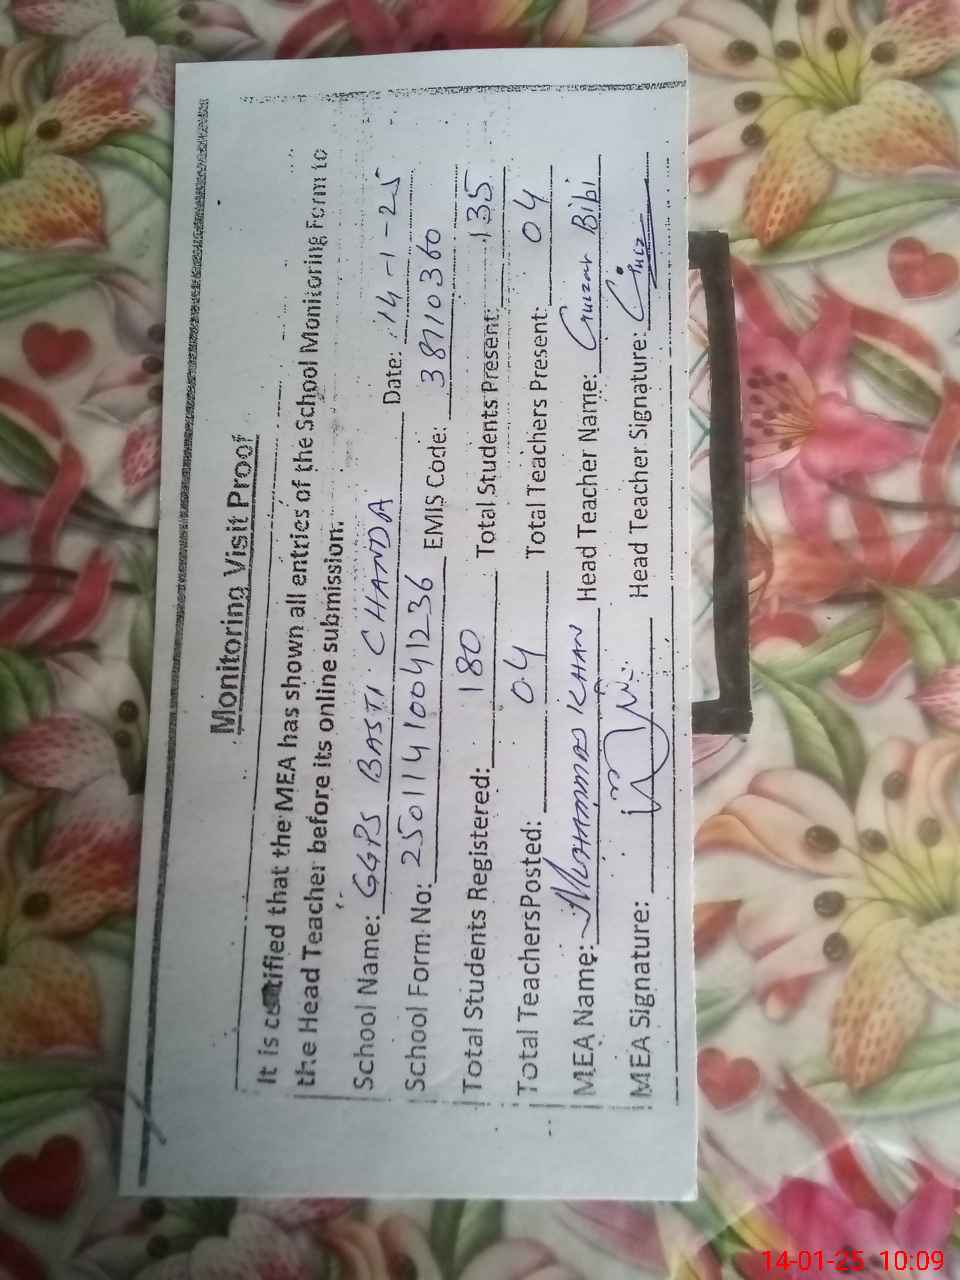 Monitoring Visit Proof
It is certified that the MEA has shown all entries of the School Monitoring Form to
the Head Teacher before its online submission.
School Name: GGPS BASTI CHANDA Date: 14-1-25
School Form No: 25011410041236 EMIS Code: 38110360
Total Students Registered: 180 Total Students Present: 135
Total TeachersPosted: 04 Total Teachers Present: 04
MEA Name: MUHAMMAD KHAN Head Teacher Name: Bibi
MEA Signature: Head Teacher Signature:
14-01-25 10:09